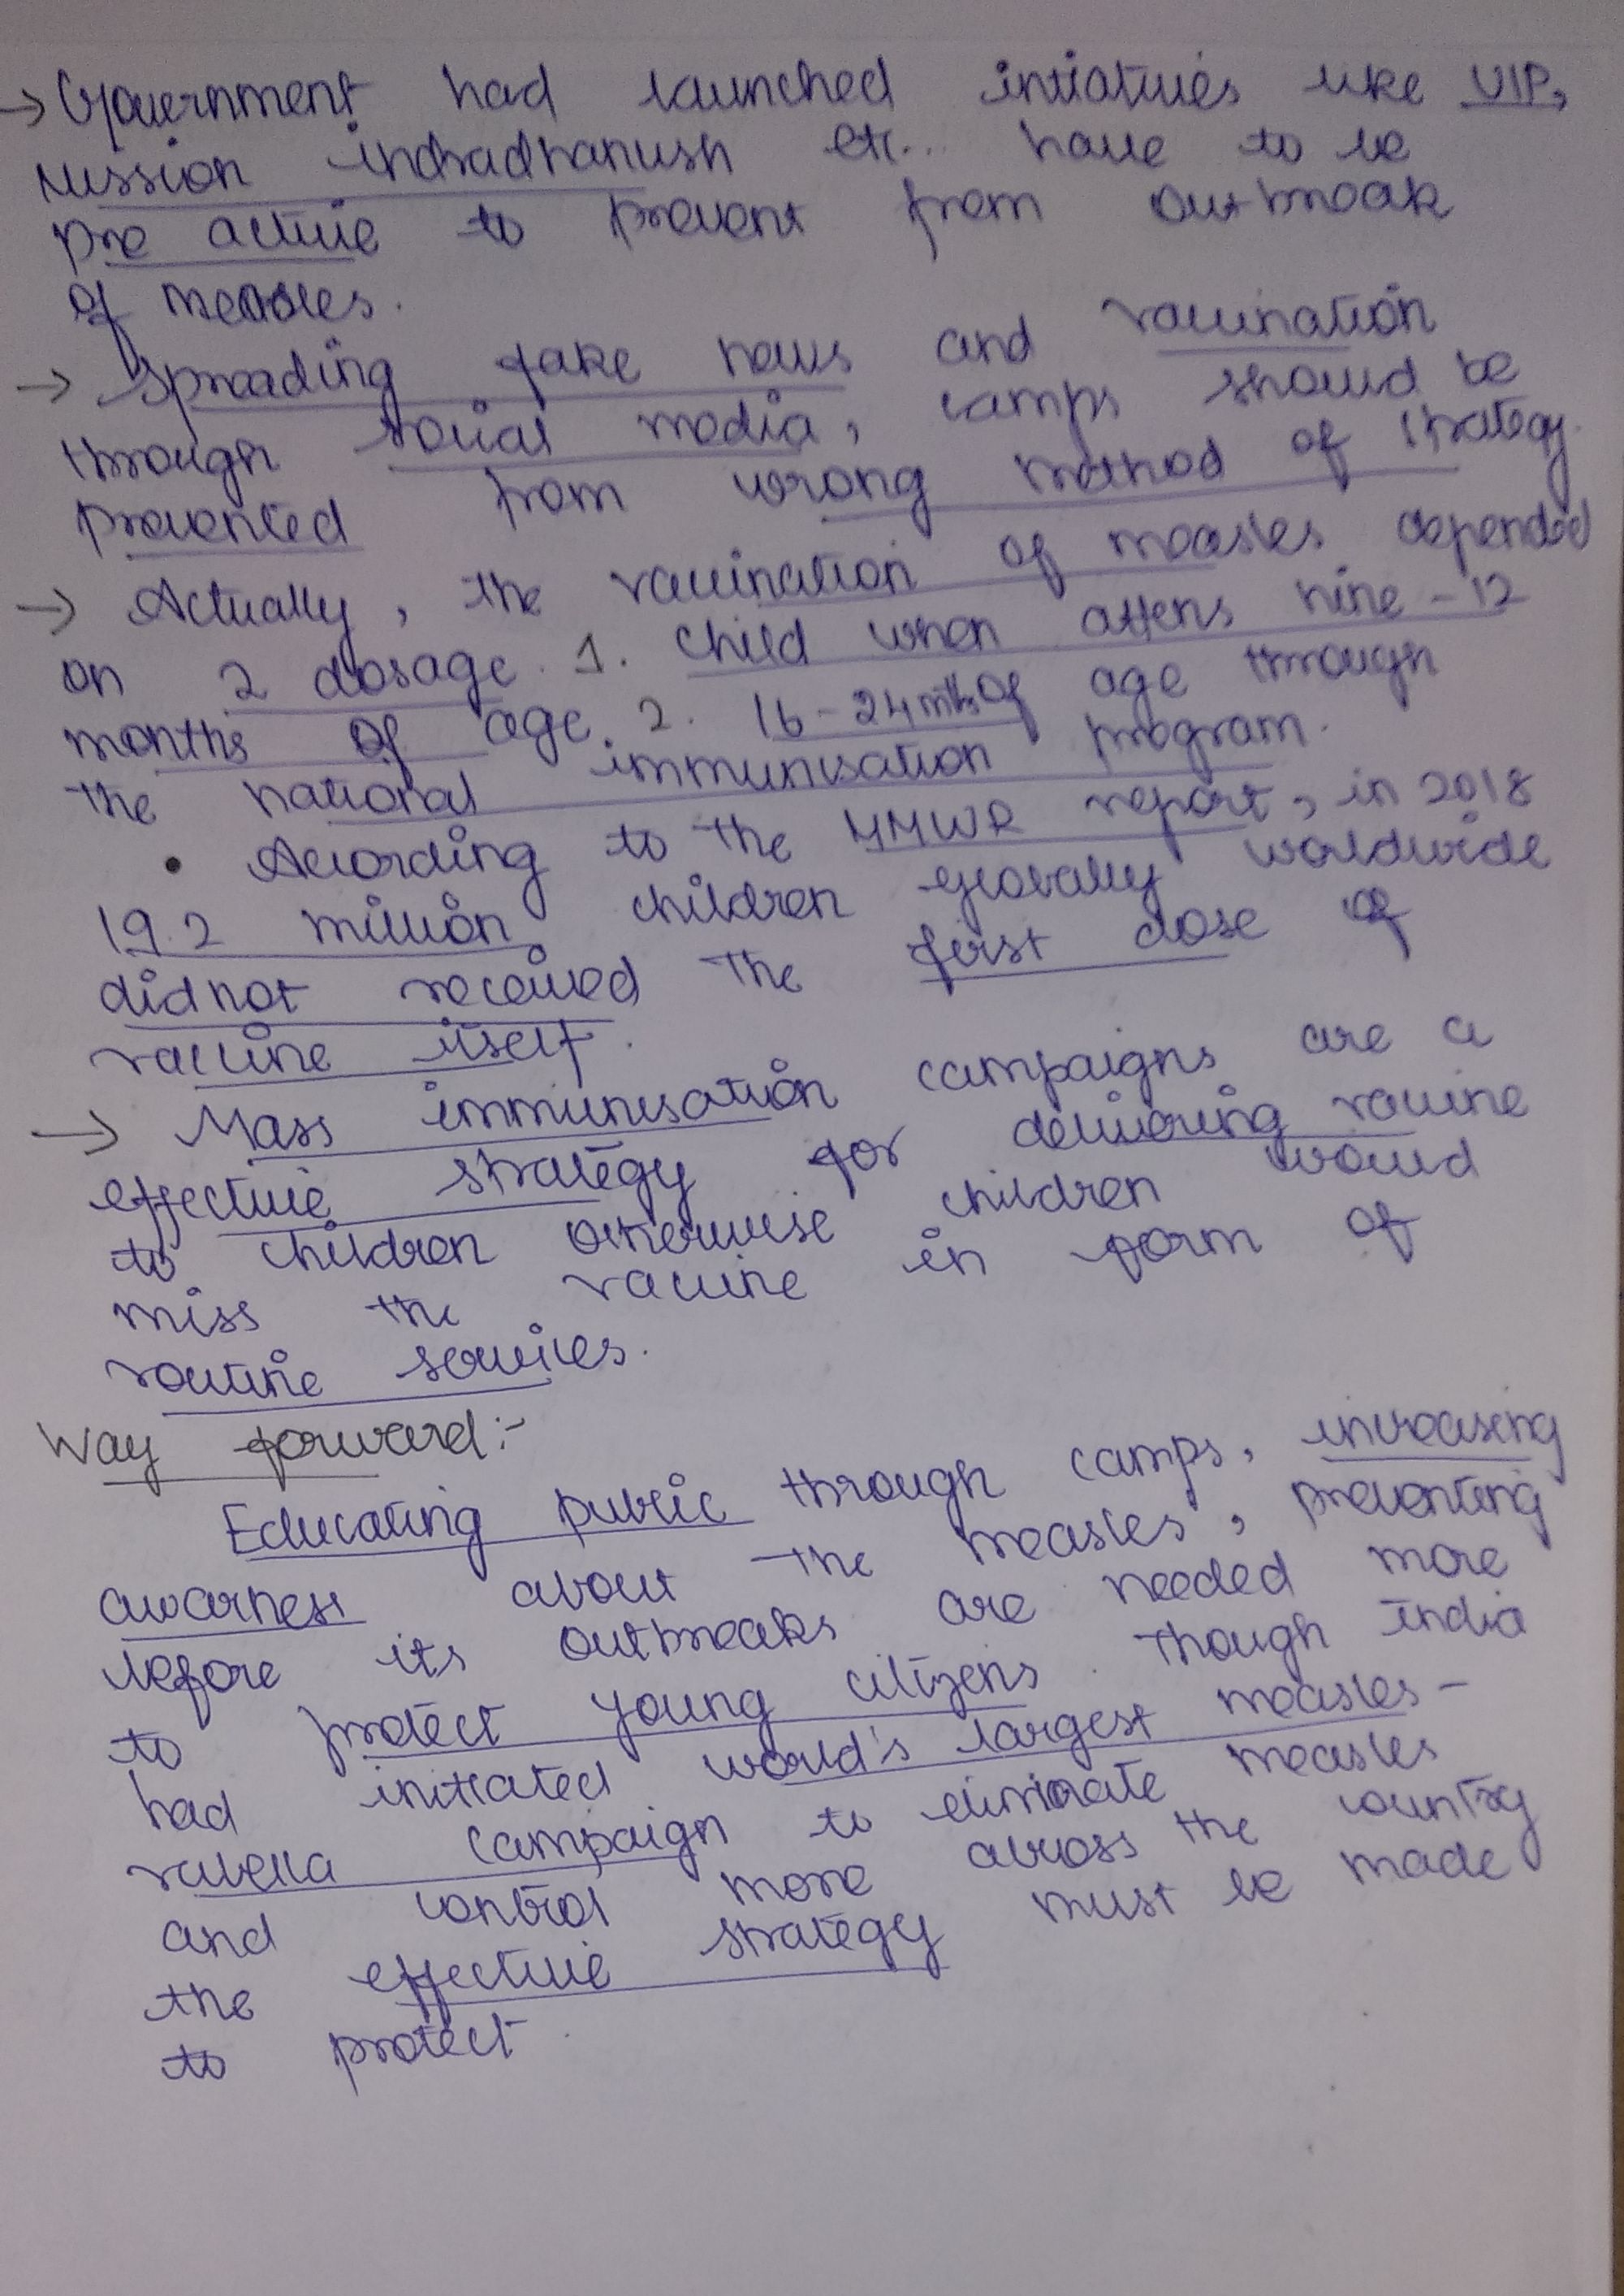 → Government had launched intiatives like UIP,
Mission indradhanush etc.. have to be
pro active to prevent from outbreak
of measles.
→ Spreading fake news and vaccination
through social media, camps should be
prevented from wrong method of strategy.
→ Actually, the vaccination of measles depended
on 2 dosage. 1. child when attens nine - 12
months of age. 2. 16 - 24 mths of age through
the national immunisation program.
• According to the MMWR report, in 2018
19.2 million children globally worldwide
did not received the first dose of
vaccine itself.
→ Mass immunisation campaigns are a
effective strategy for delivering vaccine
to children otherwise children would
miss the vaccine in form of
routine services.
Way forward:-
Educating public through camps, increasing
awarness about the measles, preventing
before its outbreaks are needed more
to protect young citizens. Though india
had initiated world's largest measles -
rubella campaign to eliminate measles
and control more across the country
the effective strategy must be made
to protect.